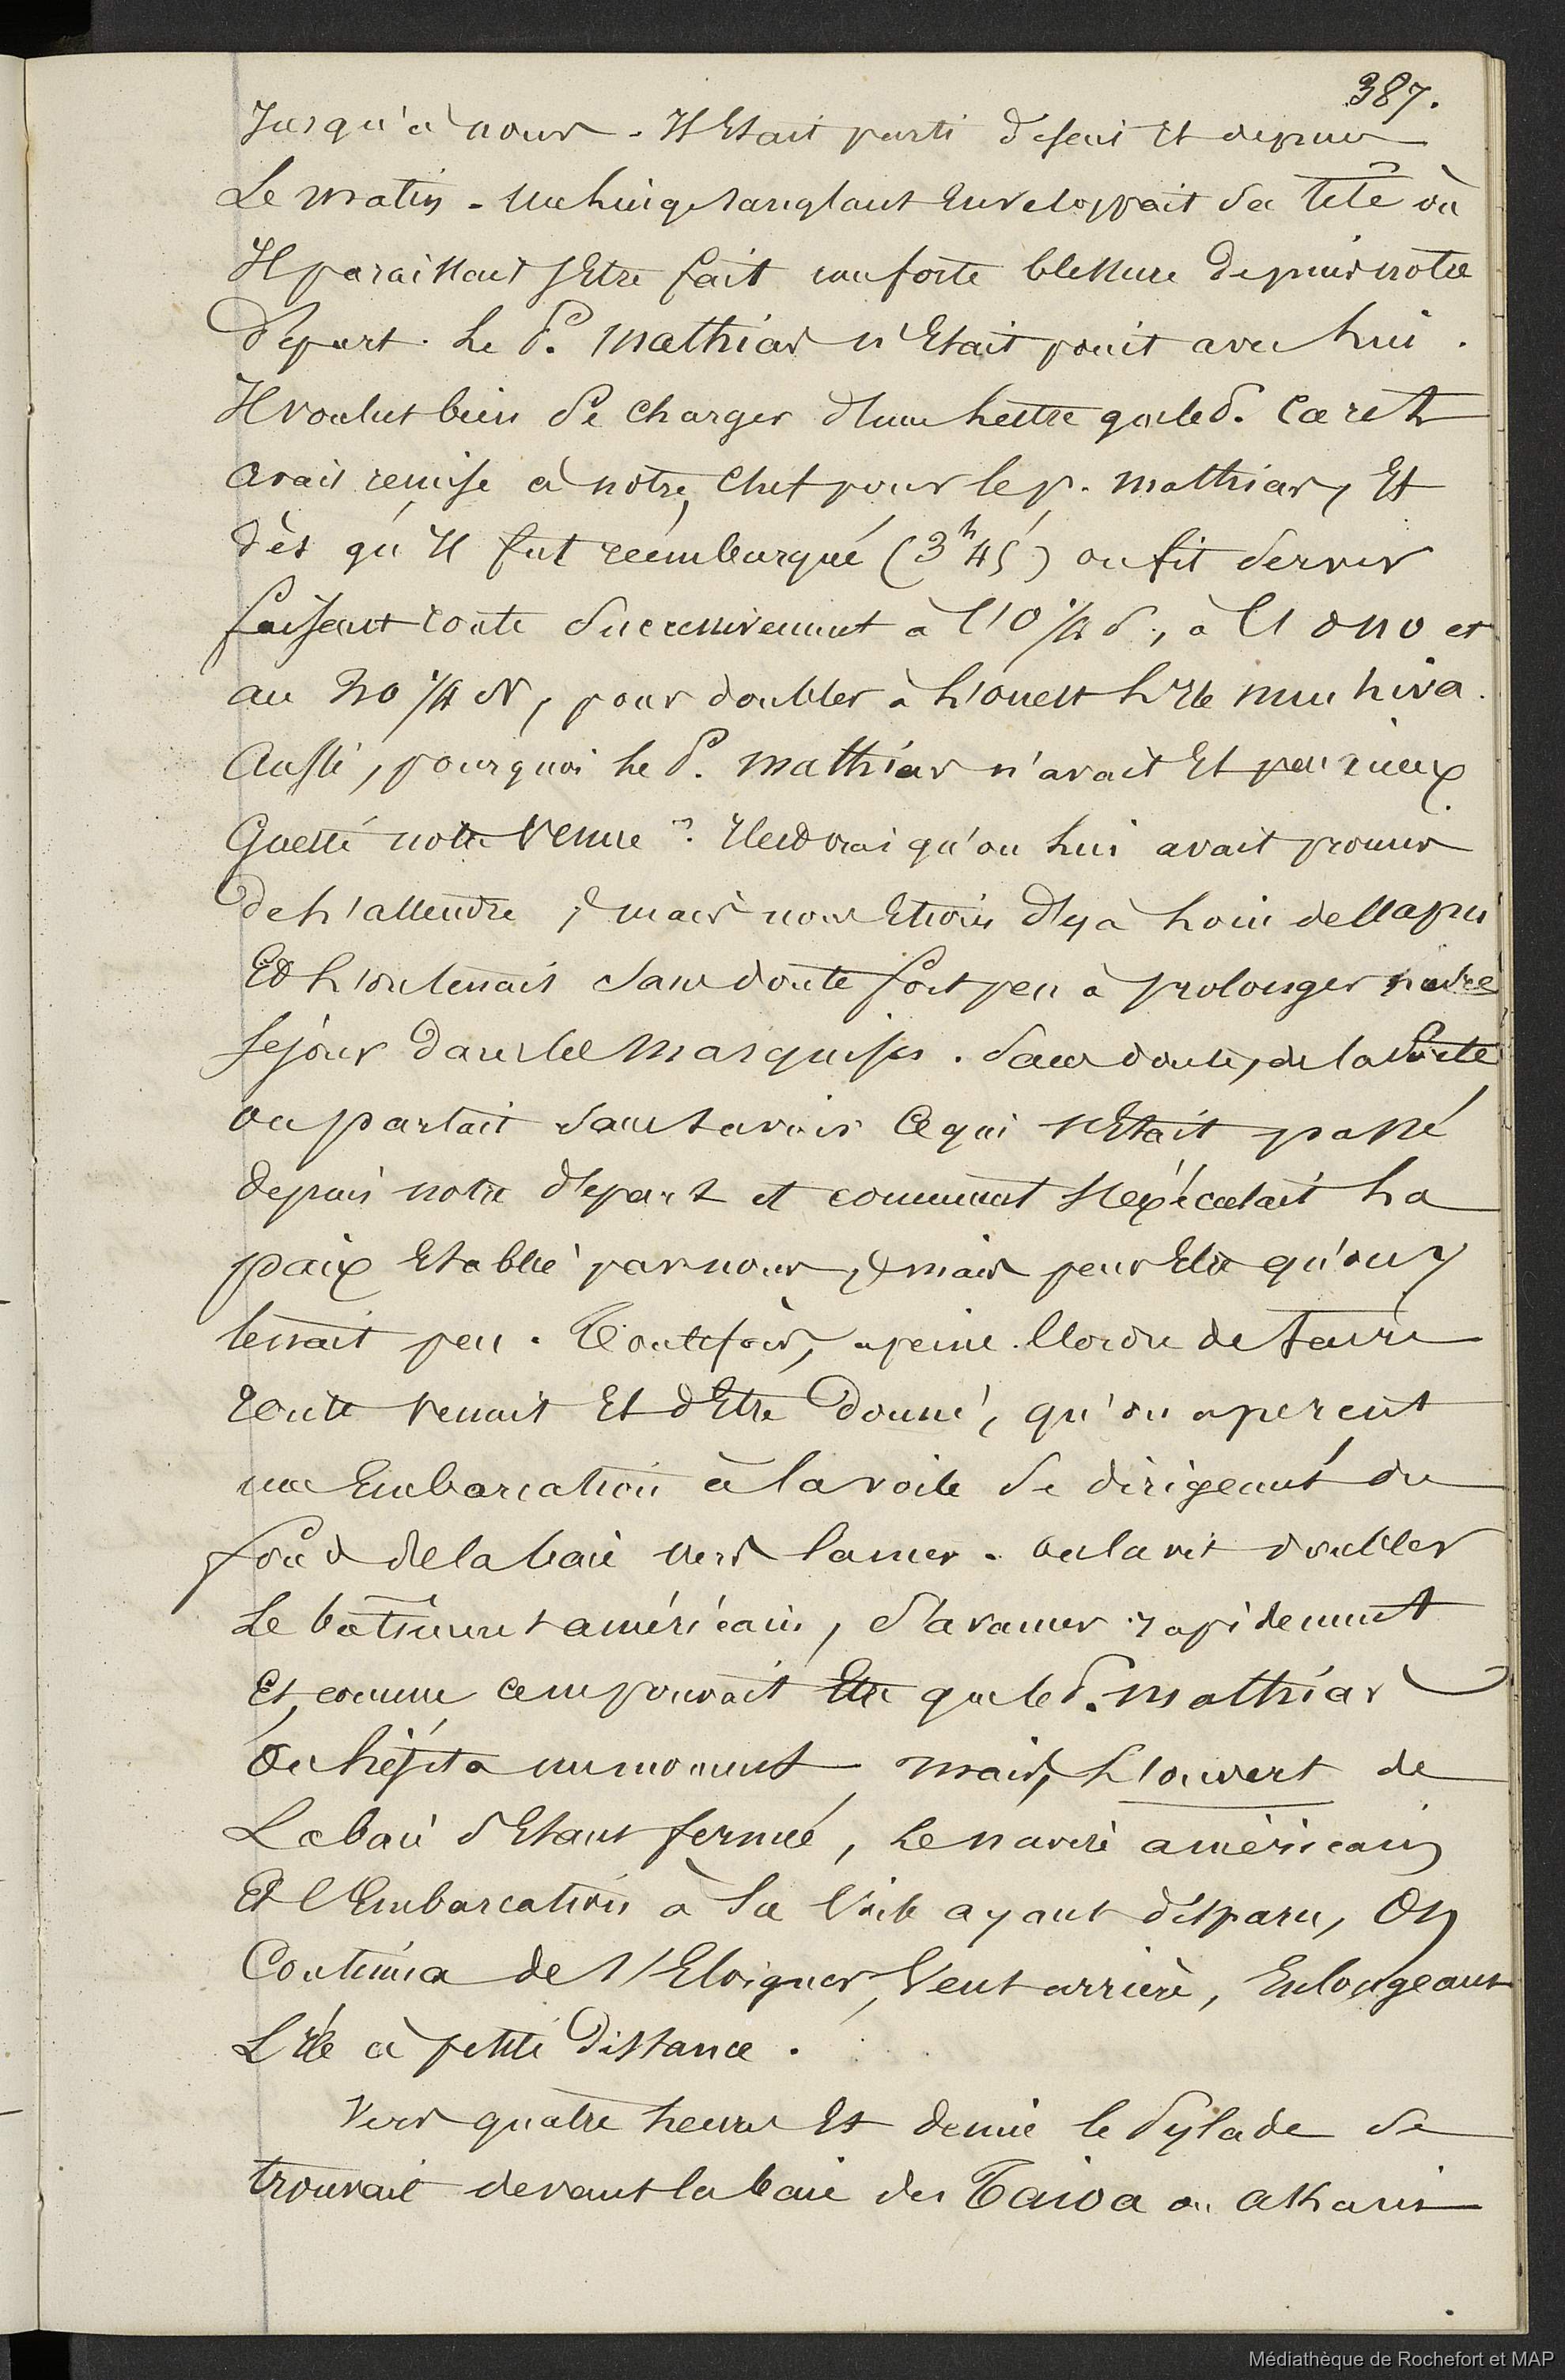 387.
Jusqu'à nous. Il était parti d'Isaii et depuis
Le matin. Un linge sanglant enveloppait sa tête où
Il paraissait s'être fait une forte blessure depuis notre
départ. Le P. Mathias n'était point avec lui.
Il voulut bien se charger d'une lettre que le P. Caret
avait remise à notre chef pour le p. mathias, Et
dès qu'il fut réembarqué (3h 45') on fit servir
faisant route successivement à l'O 1/4 S., à l'ONO et
au NO 1/4 N, pour doubler à l'ouest l'Ile nuu hiva.
Aussi, pourquoi le P. Mathias n'avait Il pas mieux
Guetté notre venue ? Il est vrai qu'on lui avait promis
de l'attendre ; mais nous étions déjà loin de
Et l'on tenait sans doute fort peu à prolonger notre
séjour dans les Marquises. Sans doute, de la sorte
on partait sans savoir Ce qui s'était passé
depuis notre départ et comment s'exécutait La
paix établie par nous ; mais peut être qu'on y
tenait peu. Toutefois, à peine l'ordre de faire
route venait Il d'être donné, qu'on aperçut
une Embarcation à la voile se dirigeant du
fond de la baie vers la mer. On la vit doubler
Le bâtiment américain, s'avancer rapidement
Et, comme ce ne pouvait être que le P. Mathias
On hésita un moment, mais, L'ouvert de
La baie s'étant fermé, Le navire américain
Et l'Embarcation à la Voile ayant disparu, On
Continua de s'éloigner, Vent arrière, Enlongeant
L'Ile à petite Distance.
Vers quatre heures Et demie le Pylade se
trouvait devant la baie des Taioa ou akani